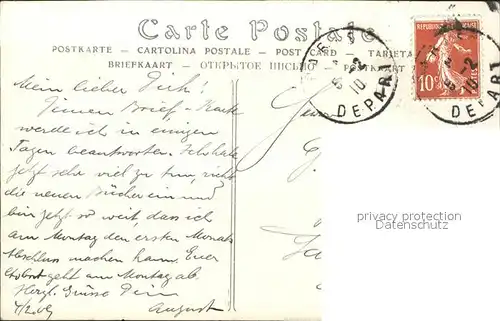 Carte Postale
POSTKARTE — CARTOLINA POSTALE — POST CARD — TARJETA
BRIEFKART — ОТКРЫТОЕ ПИСЬМО — POSTKAART
REPUBLIQUE FRANÇAISE
10
5 -2
10
DEPART
5 -2
10
DEPART
Mein lieber Dick!
Deinen Brief-Karte
werde ich in einigen
Tagen beantworten. Ich habe
jetzt sehr viel zu tun, richte
die neuen Bücher ein und
bin jetzt so weit, dass ich
am Montag den ersten Monats
Abschluss machen kann. Euer
geht am Montag ab.
Herzl. Grüsse Dein
4/2.09 August
privacy protection
Datenschutz